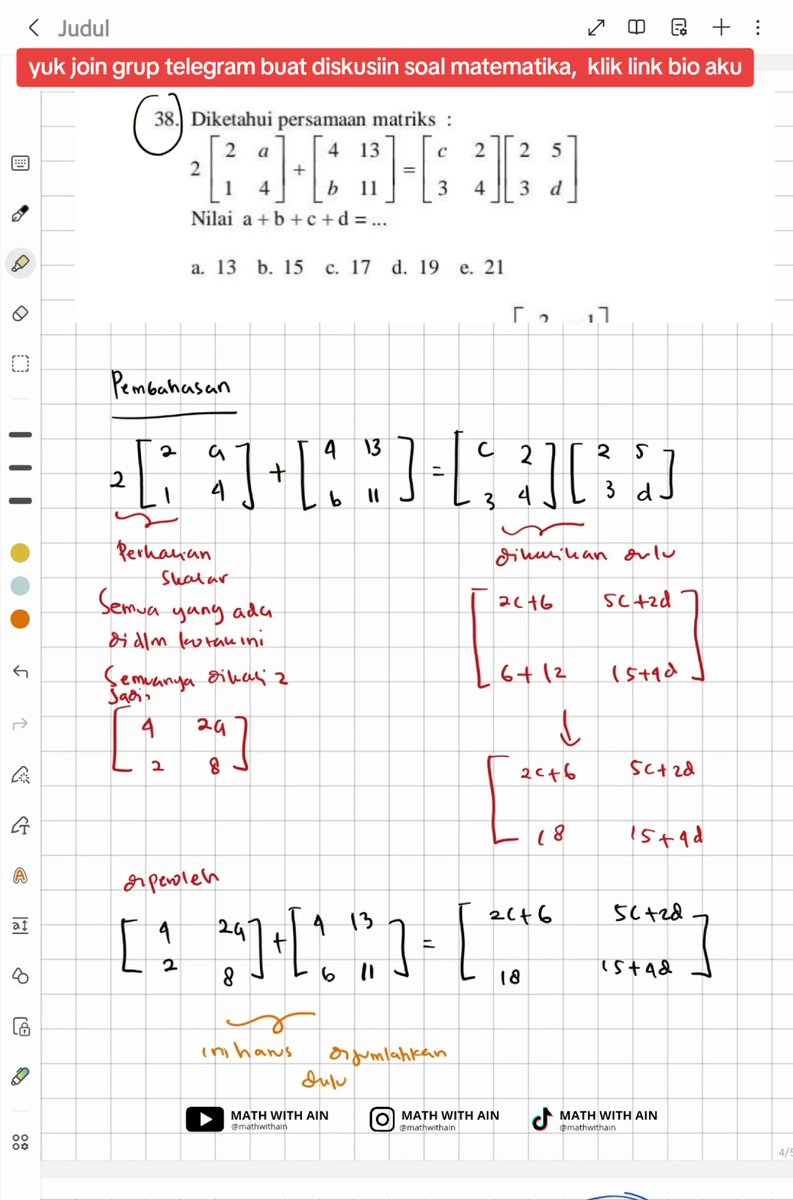 Judul
yuk join grup telegram buat diskusiin soal matematika, klik link bio aku
38. Diketahui persamaan matriks :
2 [ 2 a ] + [ 4 13 ] = [ c 2 ] [ 2 5 ]
[ 1 4 ] [ b 11 ] [ 3 4 ] [ 3 d ]
Nilai a + b + c + d = ...
a. 13 b. 15 c. 17 d. 19 e. 21
Pembahasan
2 [ 2 a ] + [ 4 13 ] = [ c 2 ] [ 2 5 ]
[ 1 4 ] [ b 11 ] [ 3 4 ] [ 3 d ]
Perkalian
Skalar
Semua yang ada
didlm kotak ini
Semuanya dikali 2
Jadi,
[ 4 2a ]
[ 2 8 ]
dikalikan dulu
[ 2c+6 5c+2d ]
[ 6+12 15+4d ]
↓
[ 2c+6 5c+2d
[ 18 15+4d
diperoleh
[ 4 2a ] + [ 4 13 ] = [ 2c+6 5c+2d ]
[ 2 8 ] [ b 11 ] [ 18 15+4d ]
ini harus dijumlahkan
dulu
MATH WITH AIN
@mathwithain
MATH WITH AIN
@mathwithain
MATH WITH AIN
@mathwithain
4/5